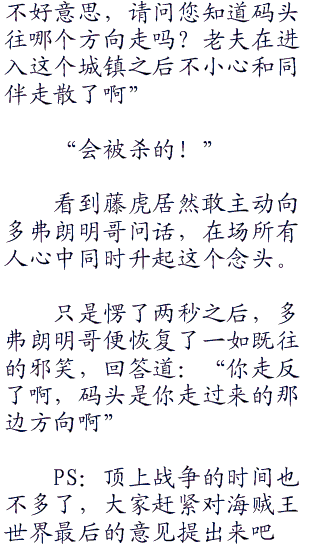 不好意思，请问您知道码头
往哪个方向走吗？老夫在进
入这个城镇之后不小心和同
伴走散了啊”
“会被杀的！”
看到藤虎居然敢主动向
多弗朗明哥问话，在场所有
人心中同时升起这个念头。
只是愣了两秒之后，多
弗朗明哥便恢复了一如既往
的邪笑，回答道：“你走反
了啊，码头是你走过来的那
边方向啊”
PS：顶上战争的时间也
不多了，大家赶紧对海贼王
世界最后的意见提出来吧